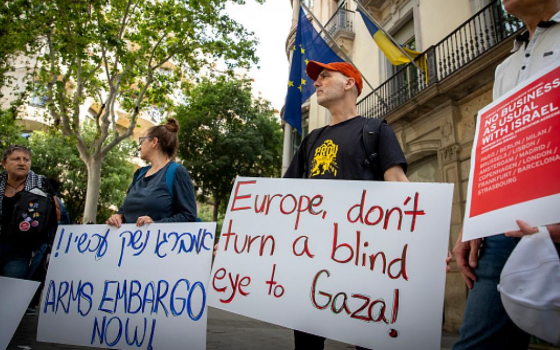 אמברגו נשק עכשיו!!
ARMS EMBARGO
NOW!
Europe, don't
turn a blind
eye to Gaza!
NO BUSINESS
AS USUAL
WITH ISRAEL
PARIS / BERLIN / MILAN
BRUSSELS / LISBON /
AMSTERDAM / MADRID /
COPENHAGEN / LONDON /
FRANKFURT / BARCELONA
STRASBOURG